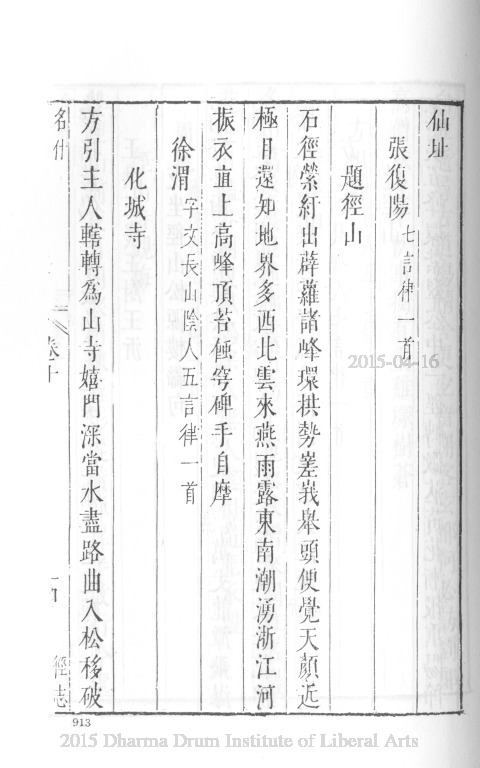 仙址
張復陽七言律一首
題徑山
石徑縈紆出薜蘿諸峰環拱勢嵳峩舉頭便覺天顏近
極目還知地界多西北雲來燕雨露東南潮湧浙江河
振衣直上高峰頂苔蝕穹碑手自摩
徐渭字文長山陰人五言律一首
化城寺
方引主人轄轉為山寺嬉門深當水盡路曲入松移破
卷十
徑志
913
2015-04-16
2015 Dharma Drum Institute of Liberal Arts